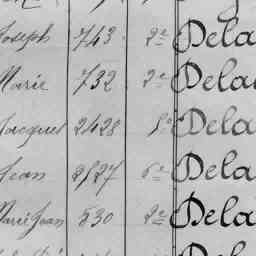 Joseph 743 2e Dela
Marie 732 2e Dela
Jacques 2428 5e Dela
Jean 2527 6e Dela
Marie Jean 530 2e Dela